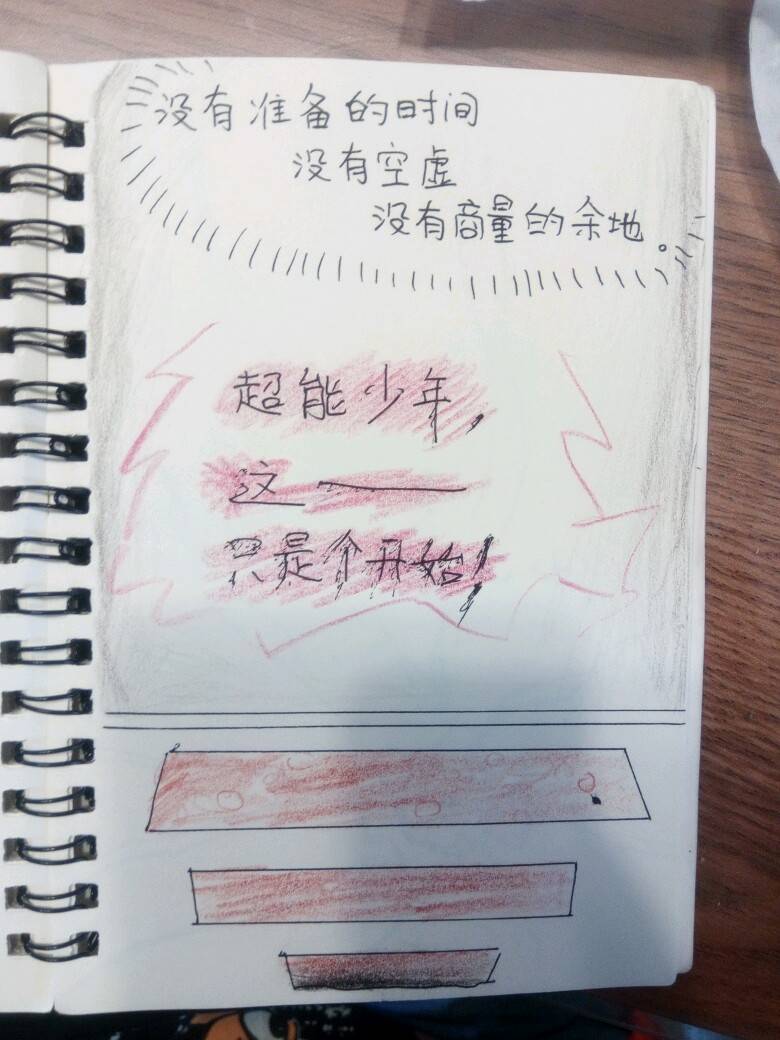 没有准备的时间
没有空虚
没有商量的余地。
超能少年，
这——
只是个开始！